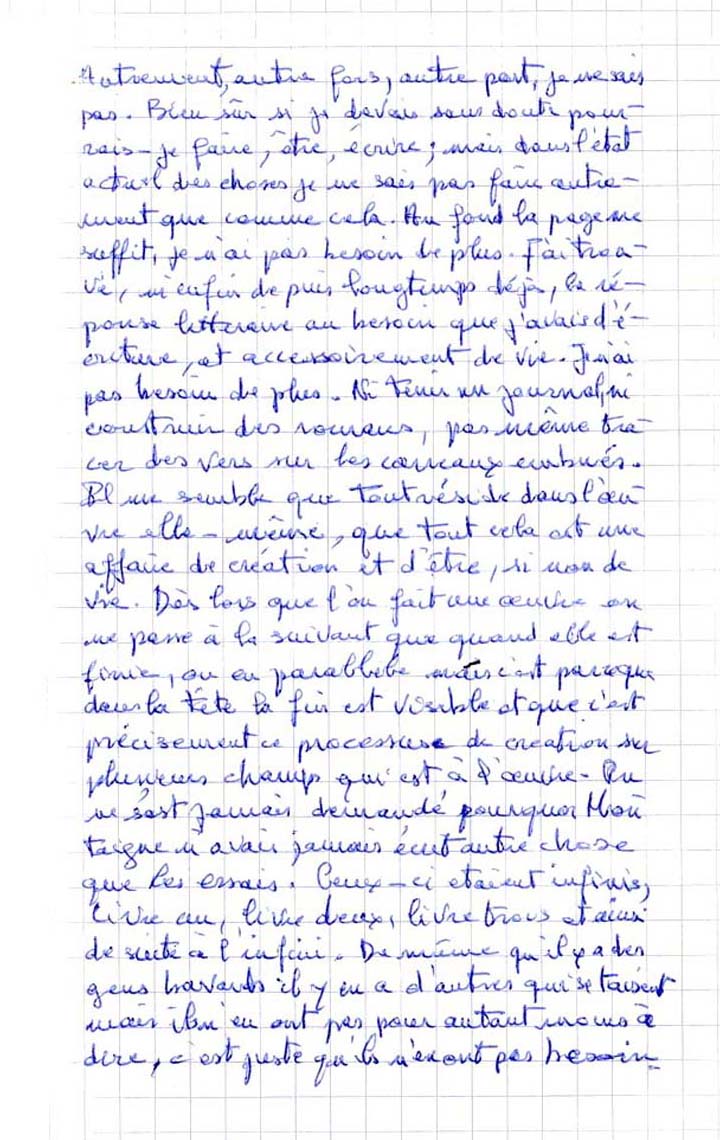 Autrement, autre fois, autre part, je ne sais
pas. Bien sûr si je devais sans doute pour-
rais-je faire, être, écrire; mais dans l'état
actuel des choses je ne sais pas faire autre-
ment que comme cela. Au fond la page me
suffit, je n'ai pas besoin de plus. J'ai trou-
vé, enfin depuis longtemps déjà, la ré-
ponse littéraire au besoin que j'avais d'é-
criture, et accessoirement de vie. Je n'ai
pas besoin de plus. Ni tenir un journal, ni
construire des romans, pas même tra-
cer des vers sur les carreaux embués.
Il me semble que tout réside dans l'œu-
vre elle-même, que tout cela est une
affaire de création et d'être, si non de
vie. Dès lors que l'on fait une œuvre on
ne passe à la suivant que quand elle est
finie, ou en parallèle mais c'est parce que
dans la tête la fin est visible et que c'est
précisément ce processus de création sur
plusieurs champs qui est à l'œuvre. On
ne s'est jamais demandé pourquoi Mon
taigne n'avait jamais écrit autre chose
que les essais. Ceux-ci étaient infinis,
livre un, livre deux, livre trois et ainsi
de suite à l'infini. De même qu'il y a des
gens bavards il y en a d'autres qui se taisent
mais ils n'en ont pas pour autant moins à
dire, c'est juste qu'ils n'en ont pas besoin.